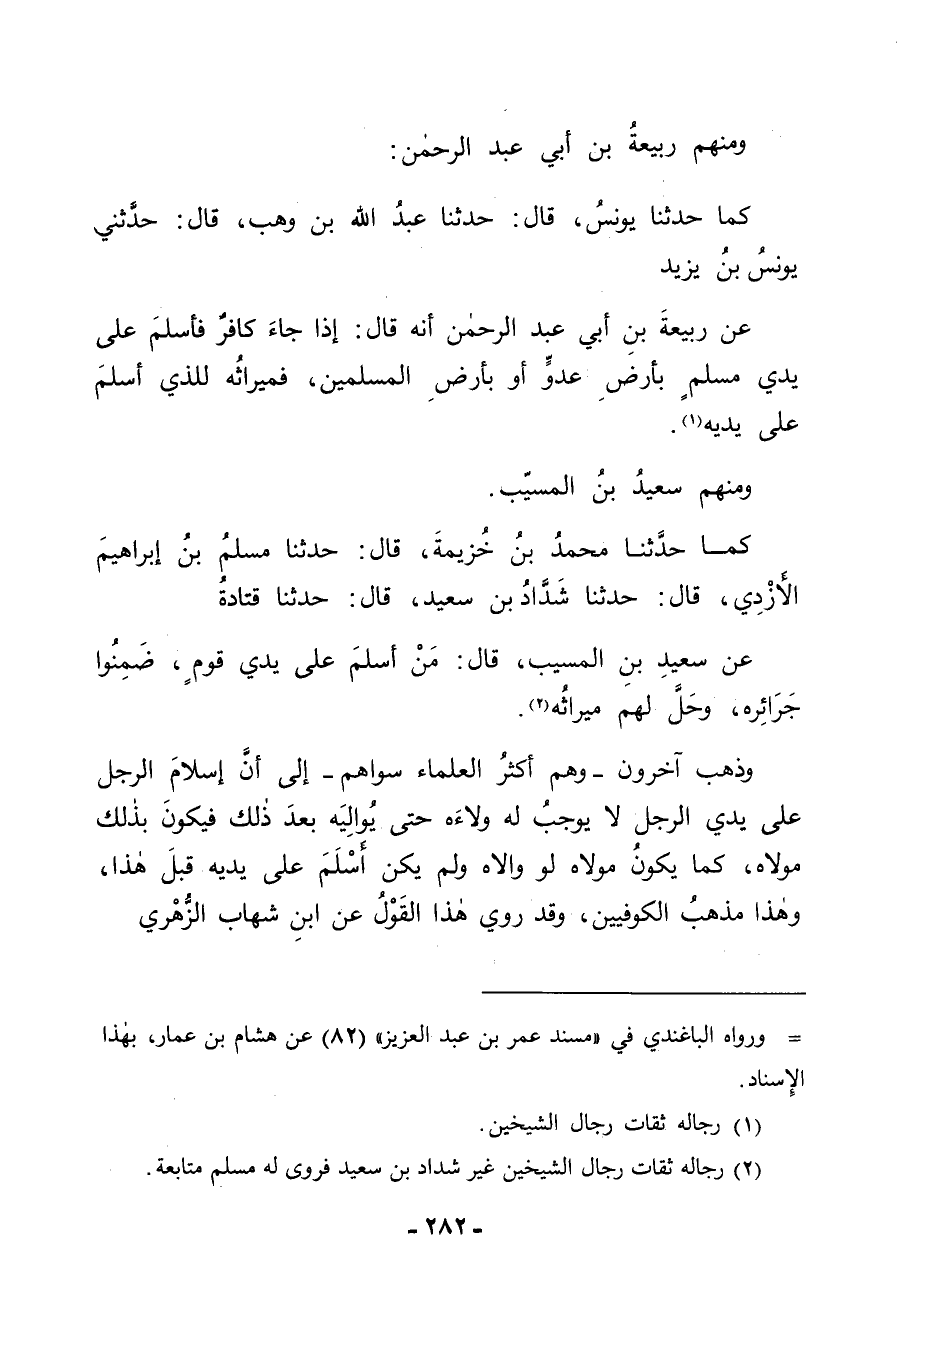 ومنهم ربيعةُ بن أبي عبد الرحمٰن:
كما حدثنا يونسُ، قال: حدثنا عبدُ الله بن وهب، قال: حدَّثني
يونسُ بنُ يزيد
عن ربيعةَ بنِ أبي عبد الرحمٰن أنه قال: إذا جاءَ كافرٌ فأسلمَ على
يدي مسلمٍ بأرضِ عدوٍّ أو بأرضِ المسلمين، فميراثُه للذي أسلمَ
على يديه(١).
ومنهم سعيدُ بنُ المسيّب.
كمــا حدَّثنـا محمدُ بنُ خُزيمةَ، قال: حدثنا مسلمُ بنُ إبراهيمَ
الأَزْدِي، قال: حدثنا شَدَّادُ بن سعيد، قال: حدثنا قتادةُ
عن سعيدِ بنِ المسيب، قال: مَنْ أسلمَ على يدي قومٍ، ضَمِنُوا
جَرَائِره، وحَلَّ لهم ميراثُه(٢).
وذهب آخرون ـ وهم أكثرُ العلماء سواهم ـ إلى أنَّ إسلامَ الرجل
على يدي الرجل لا يوجبُ له ولاءَه حتى يُوالِيَه بعدَ ذٰلك فيكونَ بذٰلك
مولاه، كما يكونُ مولاه لو والاه ولم يكن أَسْلَمَ على يديه قبلَ هٰذا،
وهٰذا مذهبُ الكوفيين، وقد روي هٰذا القَوْلُ عن ابنِ شهاب الزُّهْري
= ورواه الباغندي في «مسند عمر بن عبد العزيز» (٨٢) عن هشام بن عمار، بهٰذا
الإِسناد.
(١) رجاله ثقات رجال الشيخين.
(٢) رجاله ثقات رجال الشيخين غير شداد بن سعيد فروى له مسلم متابعة.
ـ ٢٨٢ ـ